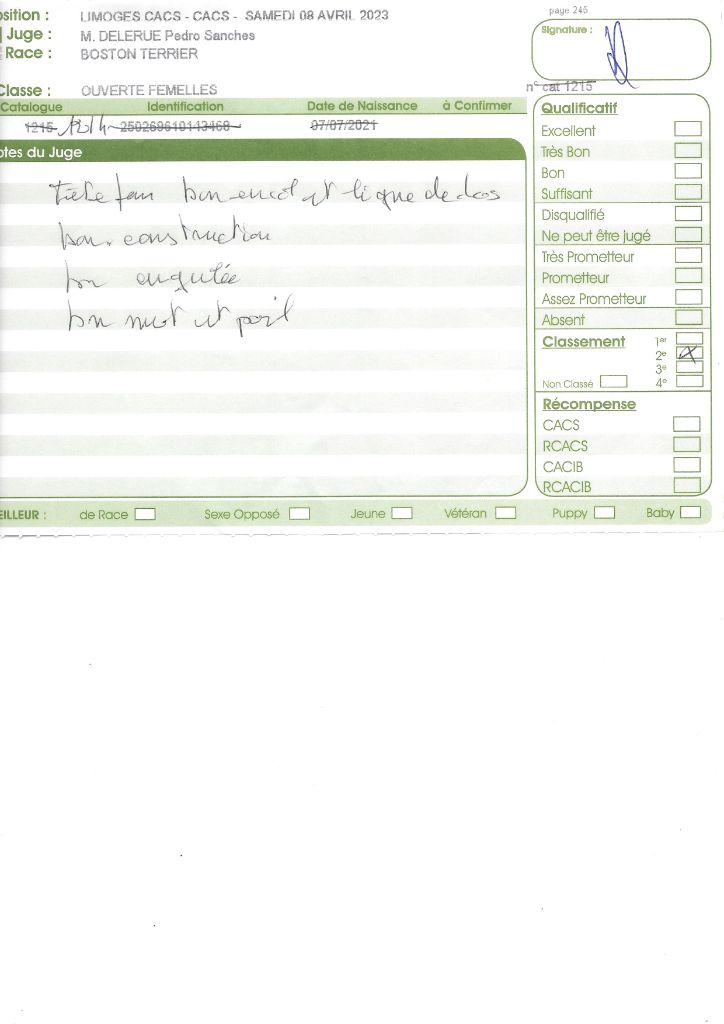 page 245
osition : LIMOGES CACS - CACS - SAMEDI 08 AVRIL 2023
Juge : M. DELERUE Pedro Sanches
Race : BOSTON TERRIER
Signature :
Classe : OUVERTE FEMELLES
n° cat 1215
Catalogue Identification Date de Naissance à Confirmer
1215 1214 250269610143468 07/07/2021
otes du Juge
bon encol et ligne de dos
bon construction
bon angulée
bon et poil
Qualificatif
Excellent
Très Bon
Bon
Suffisant
Disqualifié
Ne peut être jugé
Très Prometteur
Prometteur
Assez Prometteur
Absent
Classement 1er
2e X
3e
Non Classé 4e
Récompense
CACS
RCACS
CACIB
RCACIB
EILLEUR : de Race Sexe Opposé Jeune Vétéran Puppy Baby